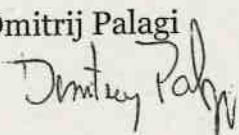 Dmitrij Palagi
Dmitrij Palagi